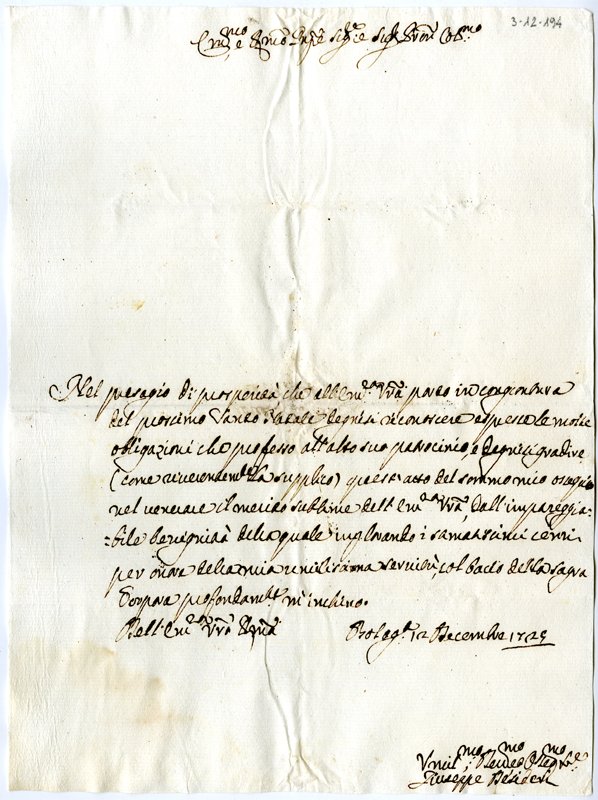 3-12-194
Em.mo e R.mo Sig.re Sig.r Pron Col.mo
Nel presagio di prosperità che all'Em.za V.ra porto in congiontura
del prossimo Santo Natale degnisi riconoscere espresse le molte
obligazioni che professo all'alto suo patrocinio, e degnisi gradire
(come riverentem.te La supplico) quest'atto del sommo mio ossequio
nel venerare il merito sublime dell'Em.za V.ra Dall'impareggia=
=bile benignità della quale implorando i stimatissimi cenni
per onore della mia umilissima servitù, col bacio della Sagra
Porpora profondam.te m'inchino.
Dell'Em.za V.ra R.ma Bolog.a 12 Decembre 1729
Umil.mo Dev.mo Obblig.mo Se.re
Giuseppe